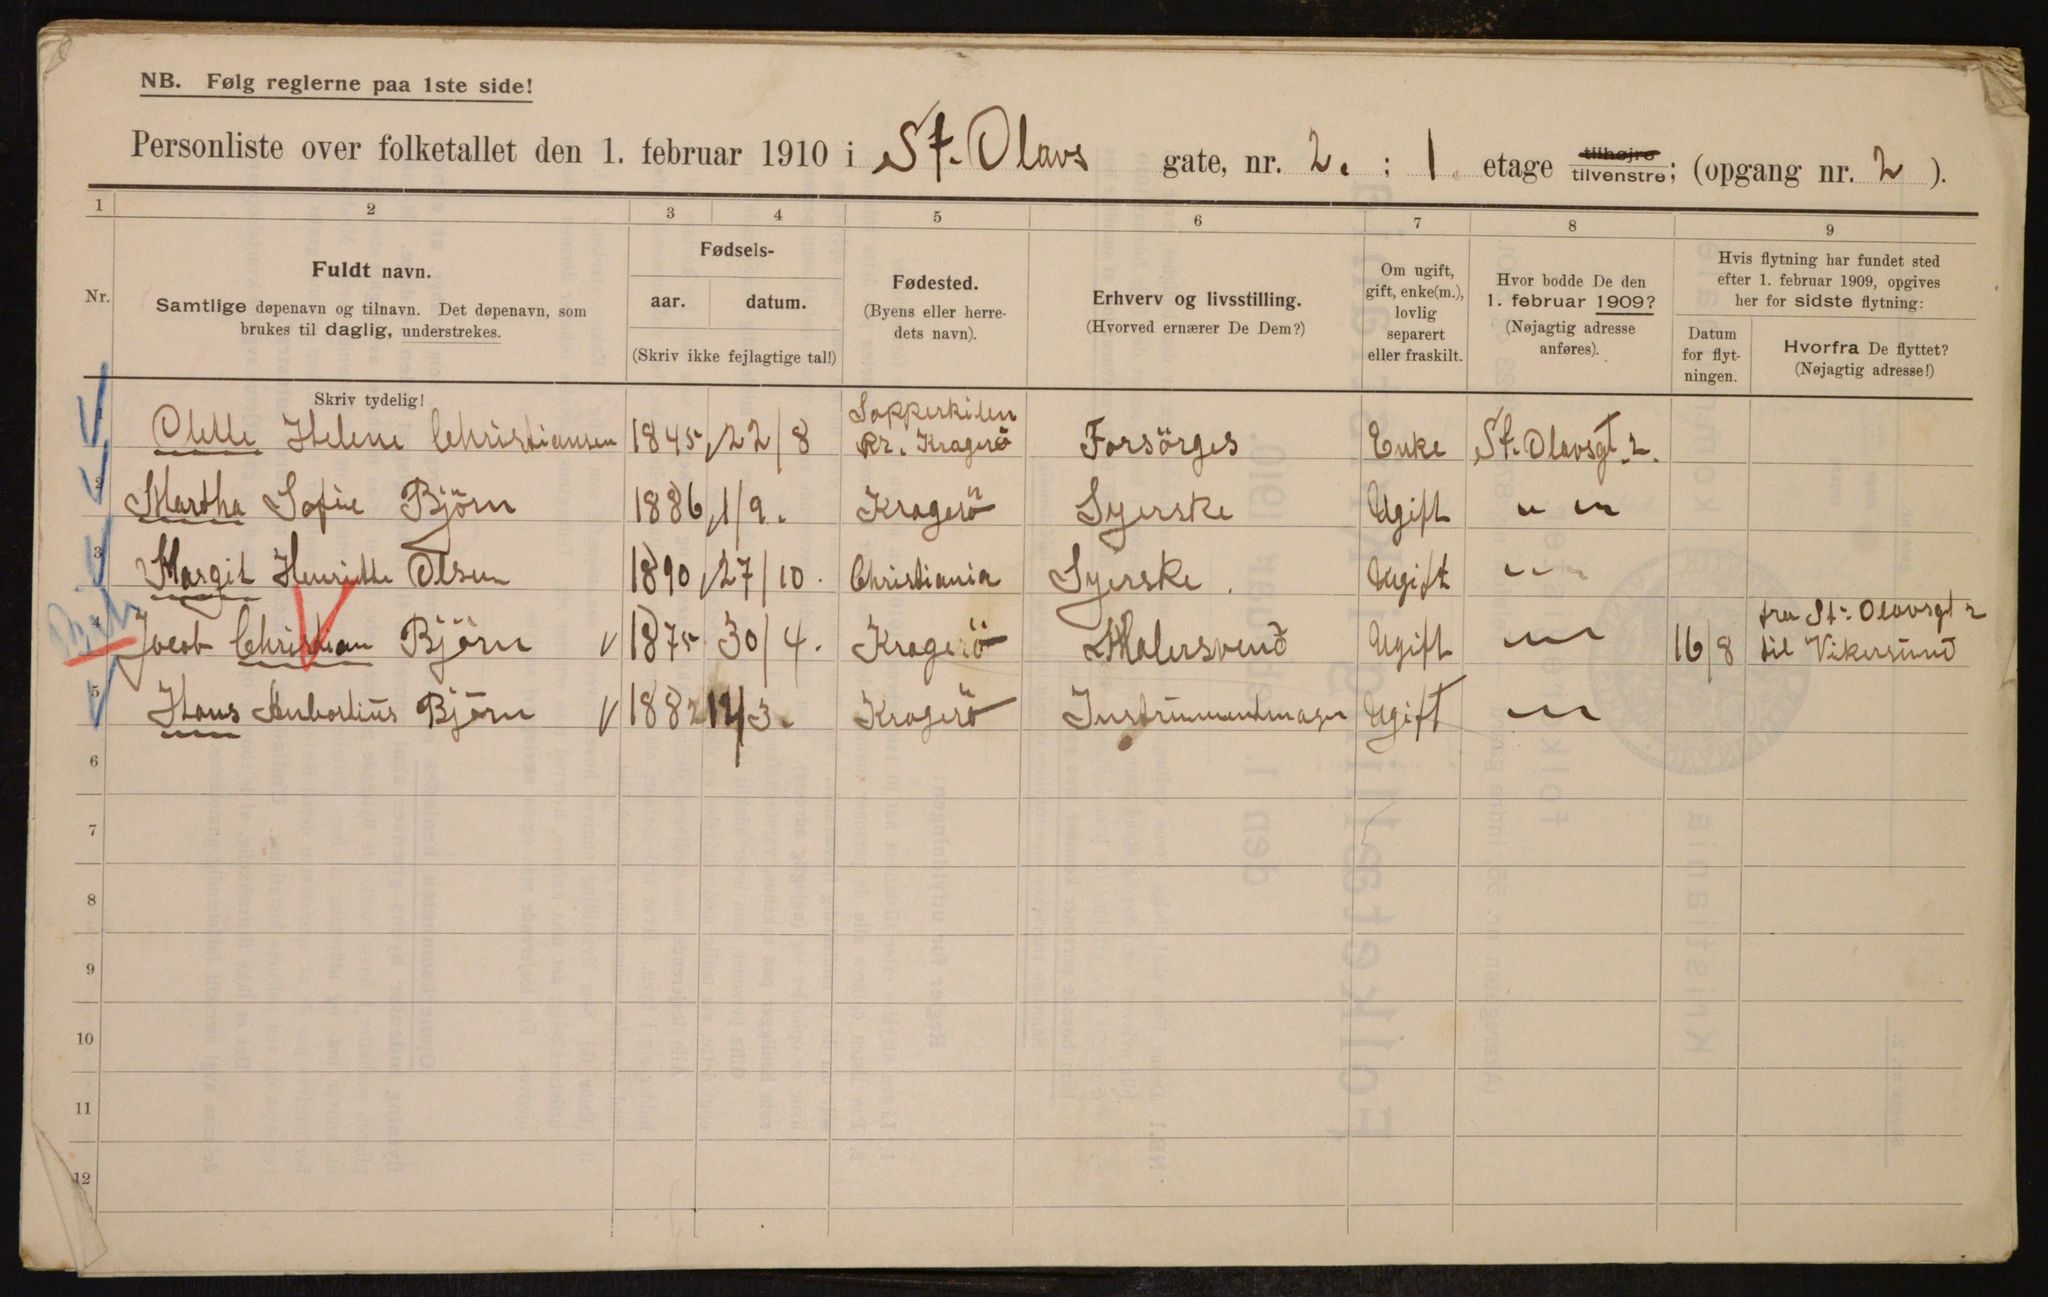 NB. Følg reglerne paa 1ste side!
Personliste over folketallet den 1. februar 1910 i St. Olavs gate, nr. 2. ; 1 etage tilhøjre tilvenstre; (opgang nr. 2 ).
1 2 3 4 5 6 7 8 9
Nr.
Fuldt navn.
Samtlige døpenavn og tilnavn. Det døpenavn, som
brukes til daglig, understrekes.
Fødsels-
aar. datum.
(Skriv ikke fejlagtige tal!)
Fødested.
(Byens eller herre-
dets navn).
Erhverv og livsstilling.
(Hvorved ernærer De Dem?)
Om ugift,
gift, enke(m.),
lovlig
separert
eller fraskilt.
Hvor bodde De den
1. februar 1909?
(Nøjagtig adresse
anføres).
Hvis flytning har fundet sted
efter 1. februar 1909, opgives
her for sidste flytning:
Datum
for flyt-
ningen.
Hvorfra De flyttet?
(Nøjagtig adresse!)
Skriv tydelig!
Helene Christiansen 1845 22/8 Kragerö Forsörges Enke St. Olavsgt. 2.
2 Martha Sofie Björn 1886 1/9. Kragerö Syerske Ugift " "
3 Margit Henriette Olsen 1890 27/10. Christiania Syerske Ugift " "
4 Jacob Christian Björn 1875 30/4. Kragerö Malersvend Ugift " 16/8 fra St. Olavsgt 2
til Vikersund
5 Hans Björn 1882 12/3. Kragerö Instrumentmager Ugift "
6
7
8
9
10
11
12